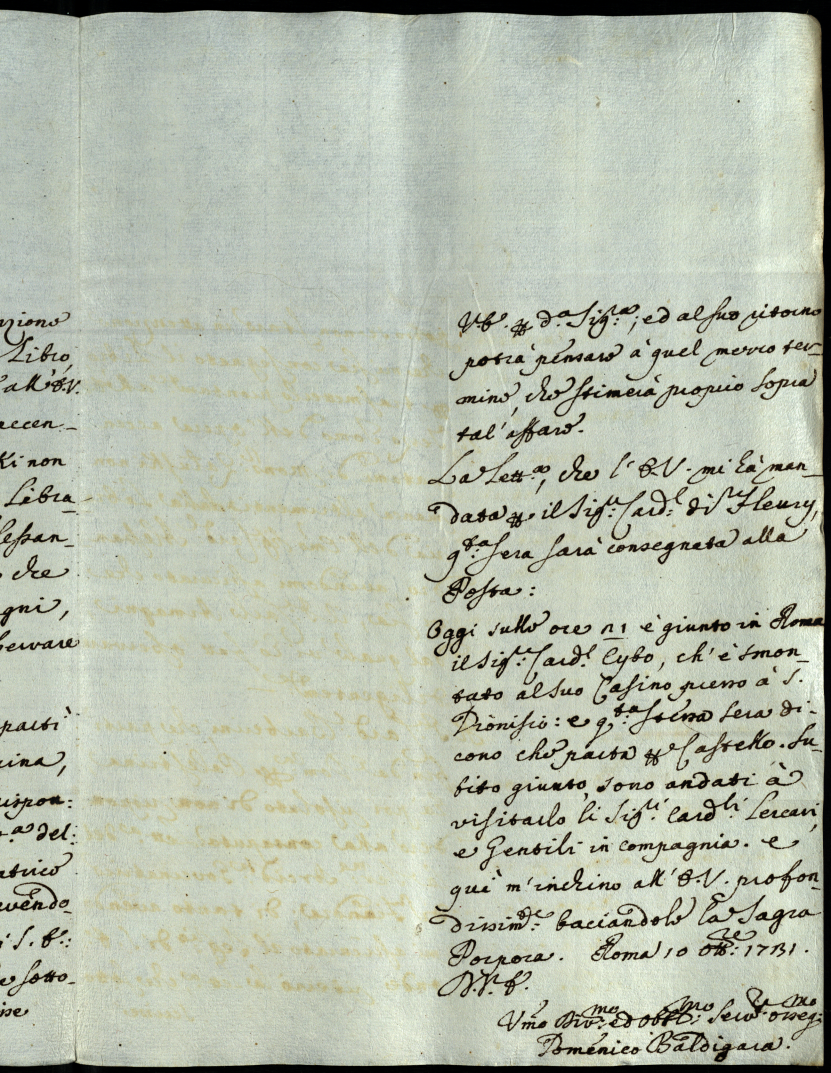 nzione
Libro,
all'E.V.
accen-
Ki non
Libra-
lessan-
che
gni,
servare
parti
cina,
rispon:
del:
vendo-
i S. E.:
e sotto-
ise
V.E. p d.ª Sig.ª, ed al suo ritorno
potrà pensare à quel mezzo ter-
mine, che stimerà proprio sopra
tal'affare.
La Lett.ª, che l'E.V. mi hà man-
data p il Sig.r Card.l di Fleury,
q.ta sera sarà consegnata alla
Posta:
Oggi sulle ore 21 è giunto in Roma
il Sig.r Card.l Cybo, ch'è smon-
tato al suo Casino presso à S.
Dionisio: e q.ta stessa sera di-
cono che parta p Castello. Su-
bito giunto, sono andati à
visitarlo li Sig.ri Card.li Lercari,
e Gentili in compagnia. e
quì m'inchino all'E.V. profon-
dissim.te baciandole la Sagra
Porpora. Roma 10 Ott.re 1731.
D.V.E.
Vmo Div.mo ed Obbl.mo Serv.re Osseq.mo
Domenico Baldigara.